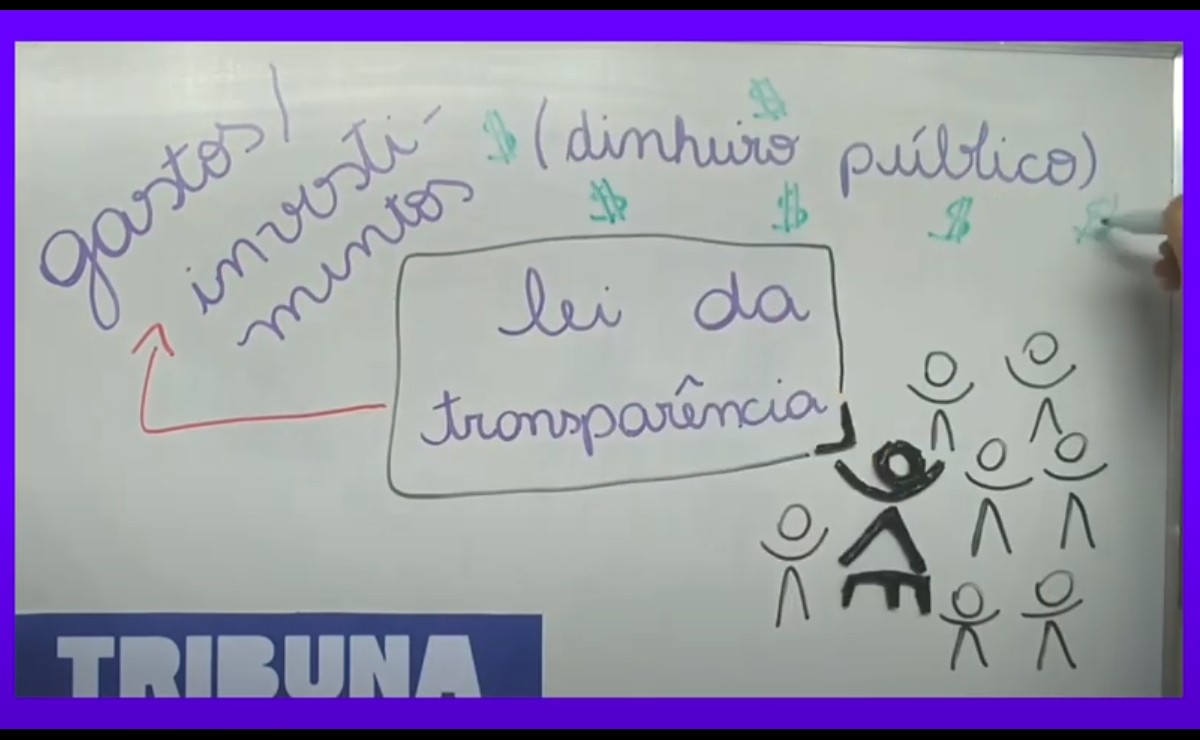 gastos/
investi-
mentos
$
$ (dinheiro público)
$ $ $ $
lei da
transparência
TRIBUNA